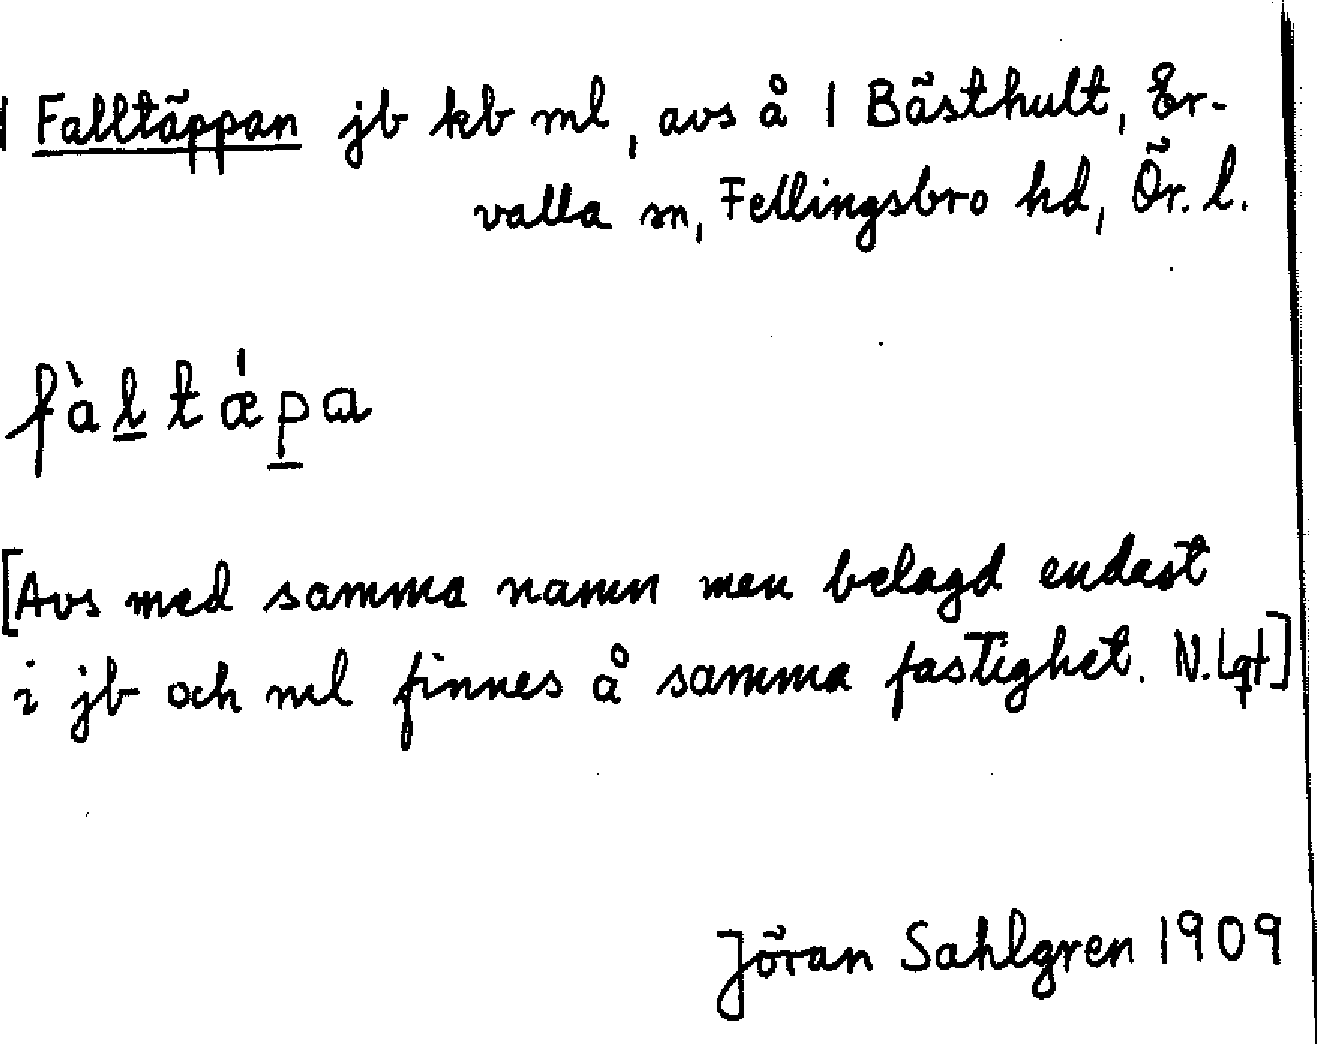 1 Falltäppan jb kb ml, avs å 1 Bästhult, Er-
valla sn, Fellingsbro hd, Ör. l.
fàltǽpa
[Avs med samma namn men belagd endast
i jb och ml finnes å samma fastighet. N.Lqt]
Jöran Sahlgren 1909